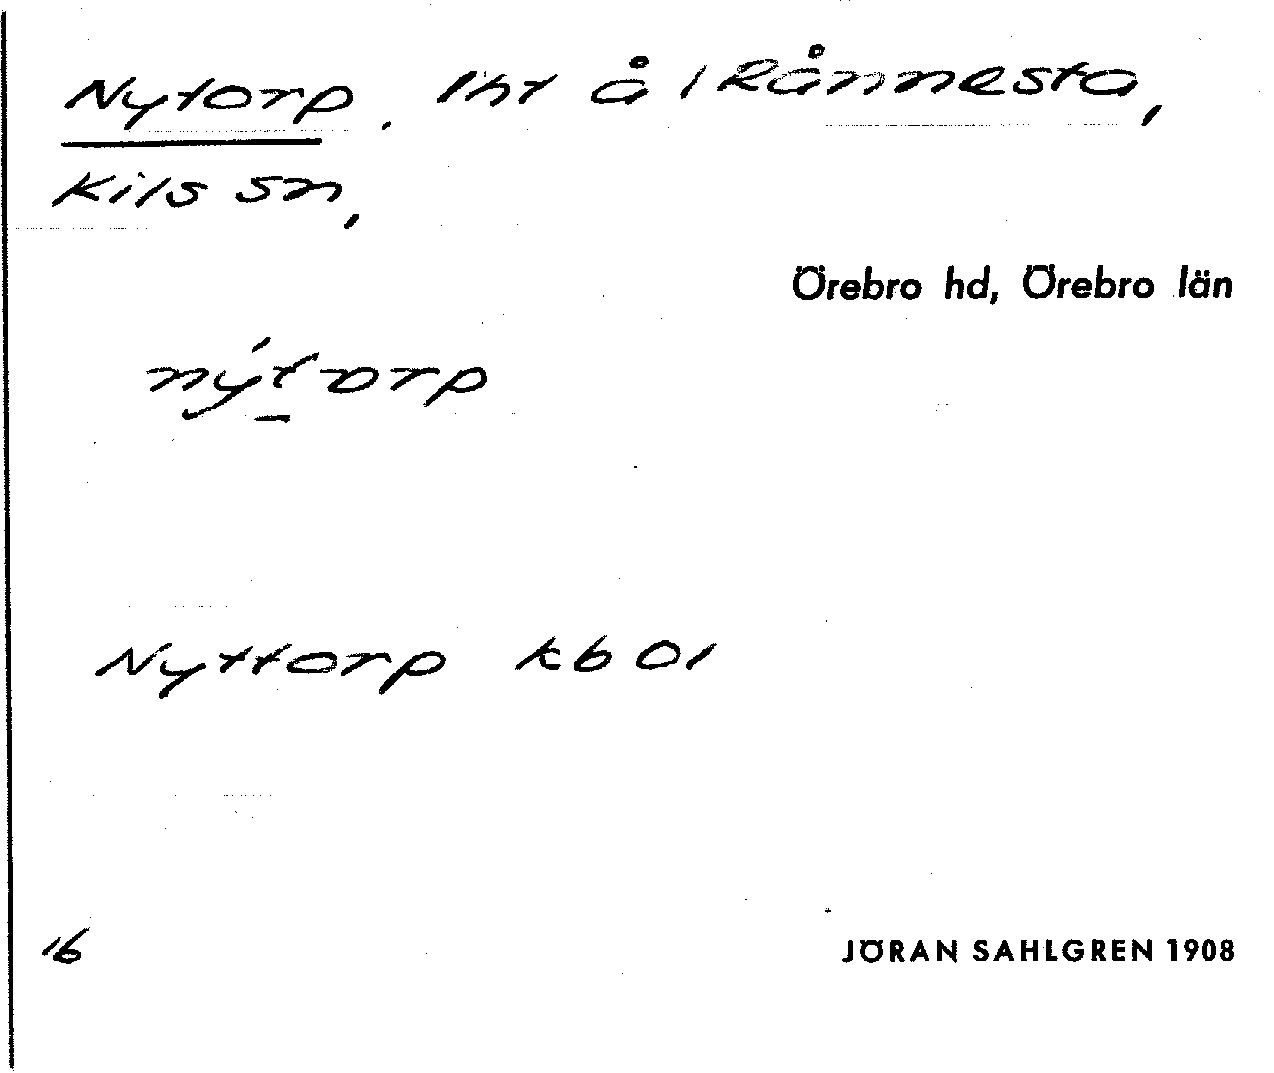 Nytorp, lht å 1 Rånnesta,
Kils sn,
Örebro hd, Örebro län
nýtorp
Nyttorp kb 01
16
JÖRAN SAHLGREN 1908